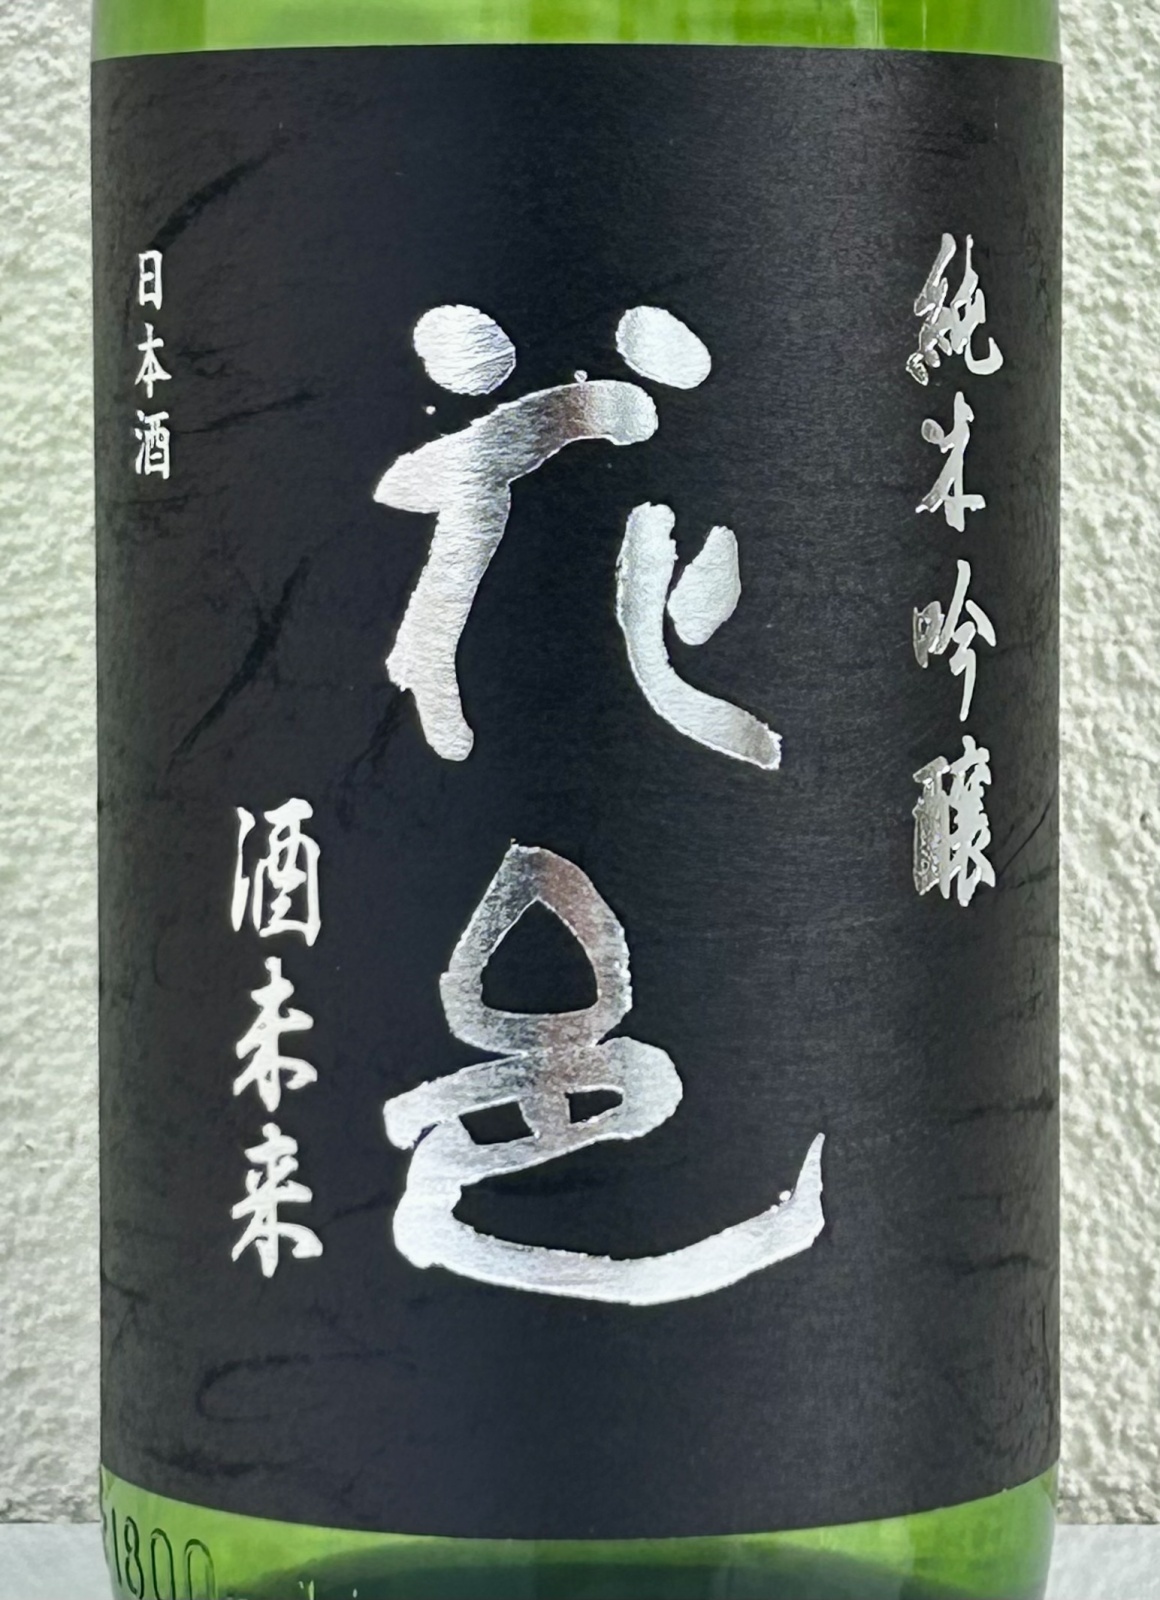 純米吟醸
花邑
酒未来
日本酒
1800